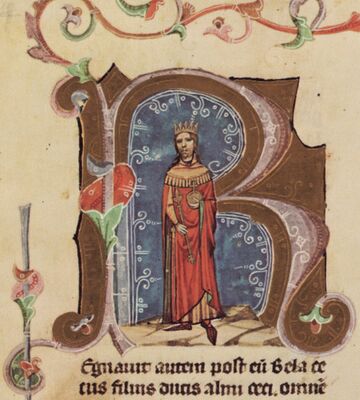 REgnauit autem post eū Bela ce
cus filius ducis almi ceci. omnē